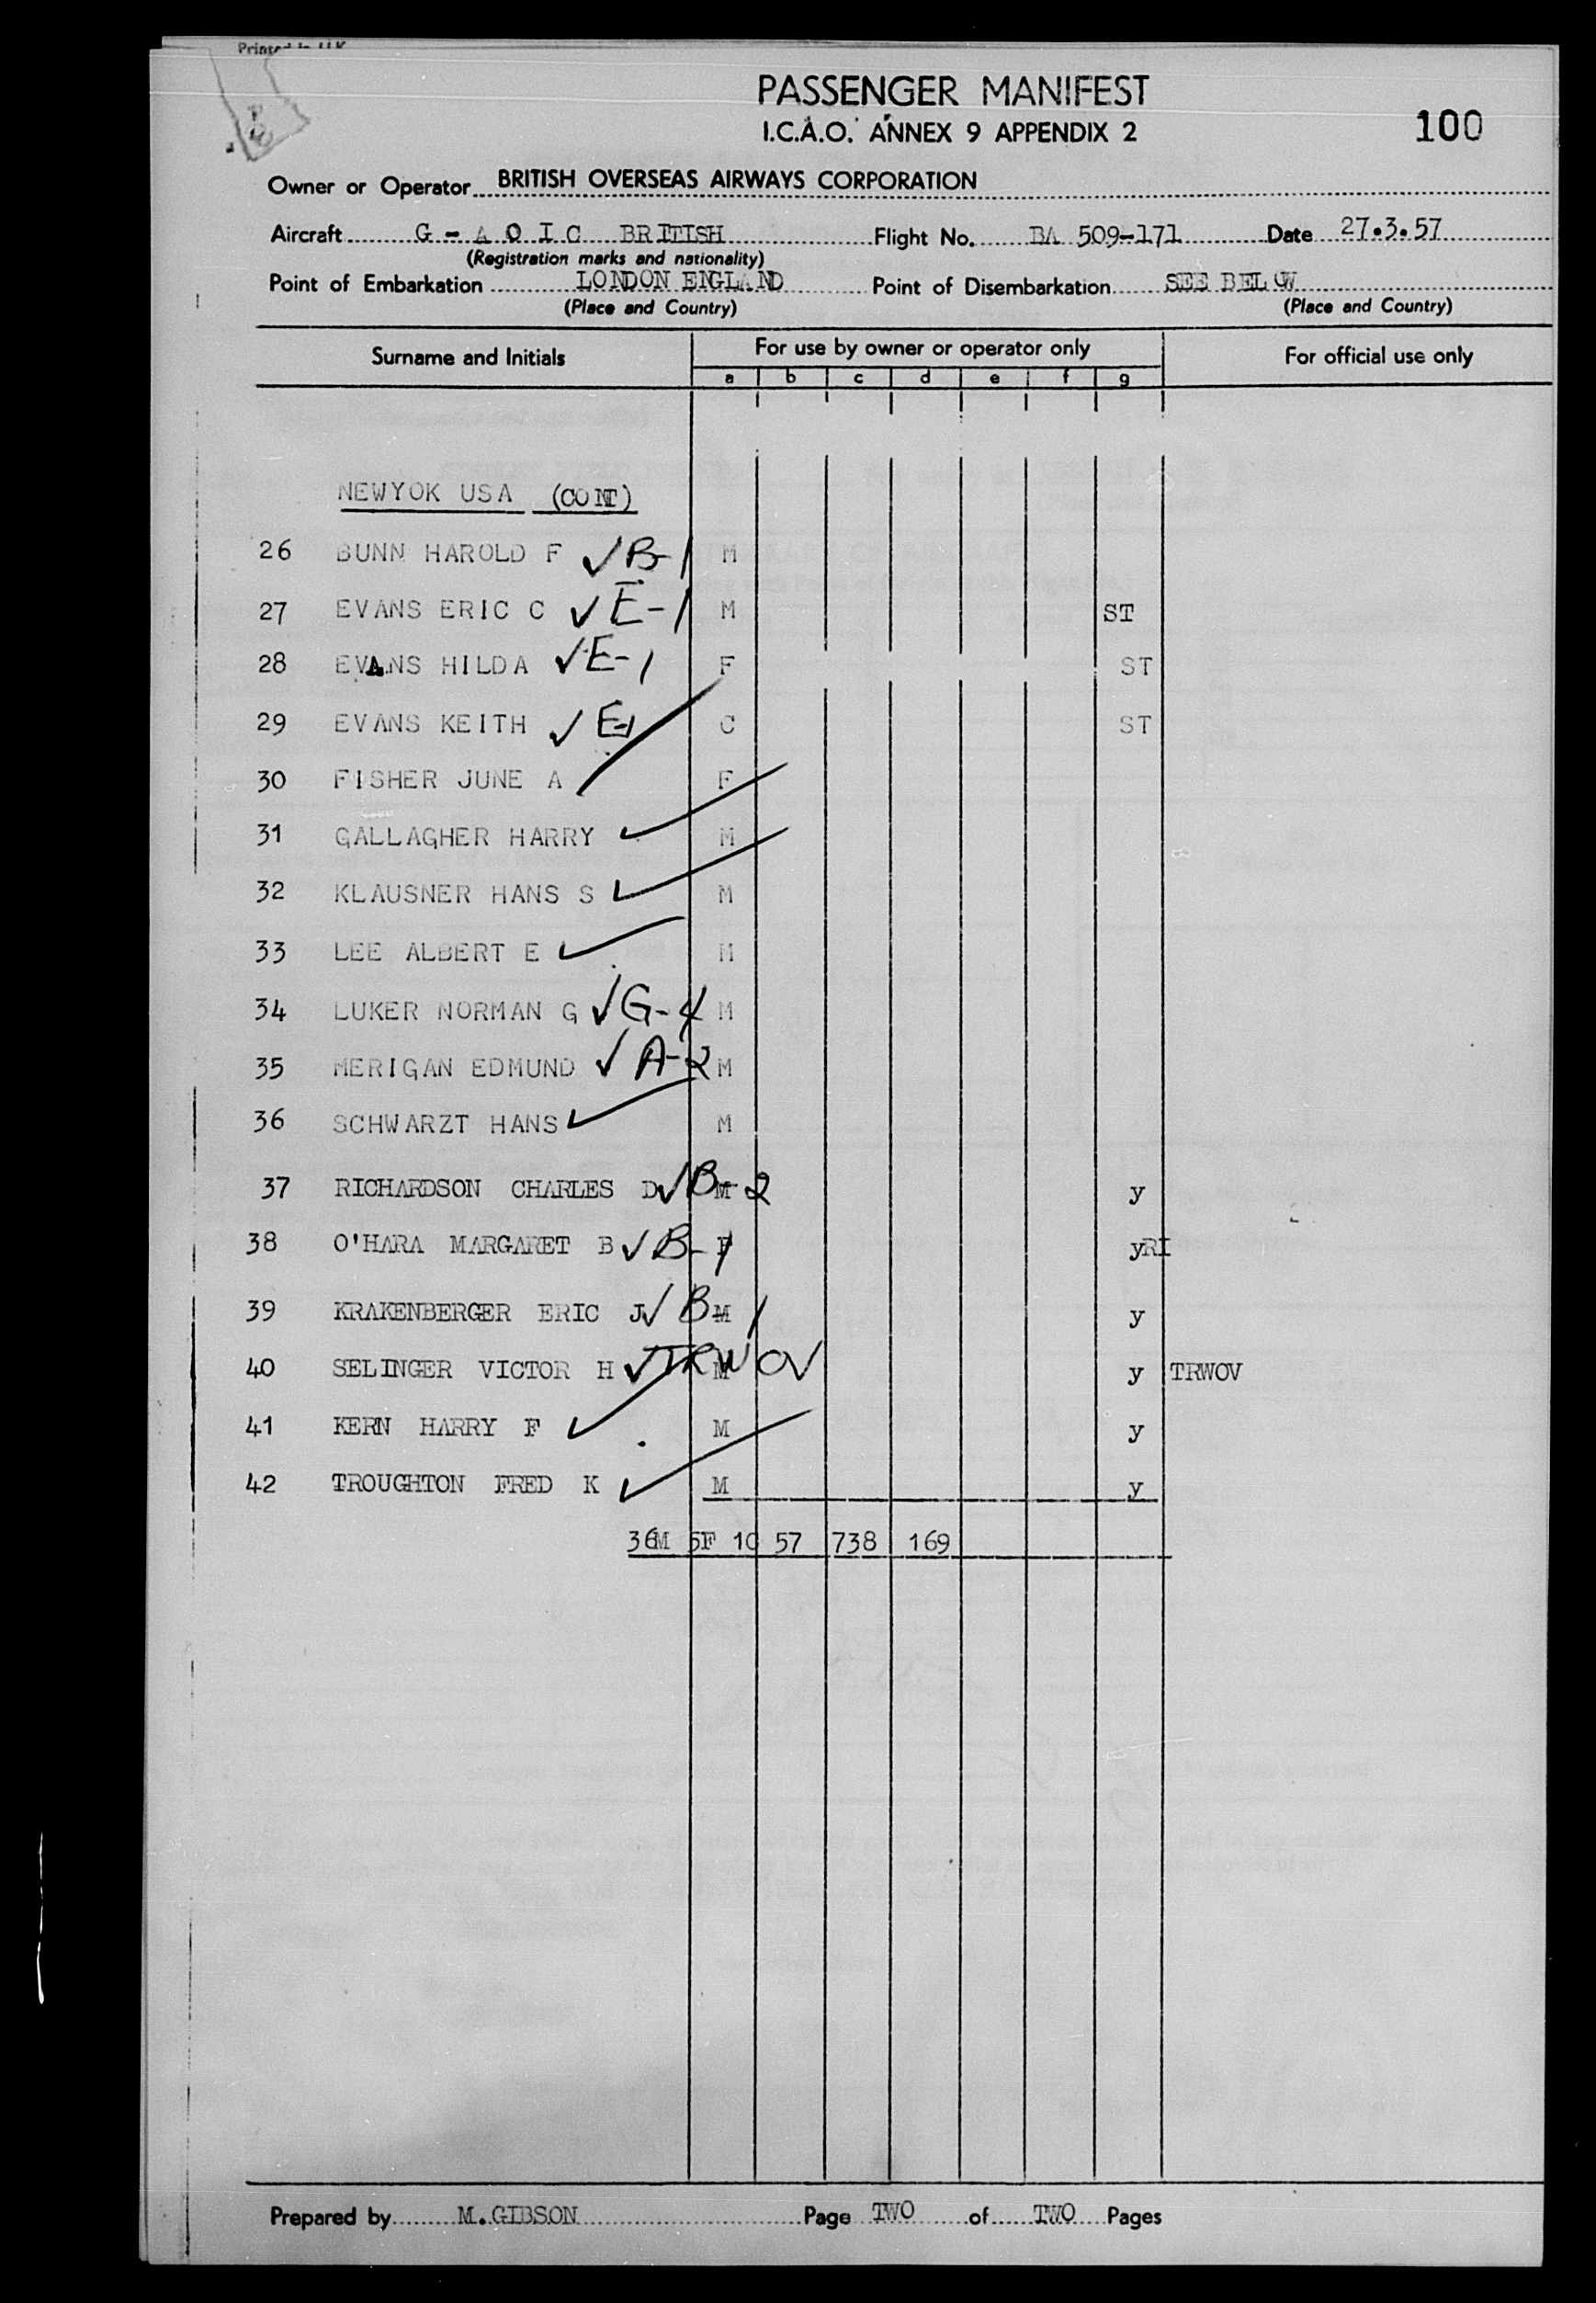 PASSENGER MANIFEST
I.C.A.O. ANNEX 9 APPENDIX 2
100
Owner or Operator BRITISH OVERSEAS AIRWAYS CORPORATION
Aircraft G - A O I C BRITISH Flight No. BA 509-171 Date 27.3.57
(Registration marks and nationality)
Point of Embarkation LONDON ENGLAND Point of Disembarkation SEE BELOW
(Place and Country) (Place and Country)
Surname and Initials For use by owner or operator only For official use only
a b c d e f g
NEWYOK USA (CONT)
26 BUNN HAROLD F ✓ B-1 M
27 EVANS ERIC C ✓ E-1 M ST
28 EVANS HILDA ✓ E-1 F ST
29 EVANS KEITH ✓ E-1 C ST
30 FISHER JUNE A F
31 GALLAGHER HARRY ✓ M
32 KLAUSNER HANS S ✓ M
33 LEE ALBERT E ✓ M
34 LUKER NORMAN G ✓ G-4 M
35 MERIGAN EDMUND ✓ A-2 M
36 SCHWARZT HANS ✓ M
37 RICHARDSON CHARLES D ✓ B-2 M y
38 O'HARA MARGARET B ✓ B-1 F yRI
39 KRAKENBERGER ERIC J ✓ B-1 M y
40 SELINGER VICTOR H ✓ TRWOV M y TRWOV
41 KERN HARRY F ✓ M y
42 TROUGHTON FRED K ✓ M y
36M 5F 1C 57 738 169
Prepared by M.GIBSON Page TWO of TWO Pages